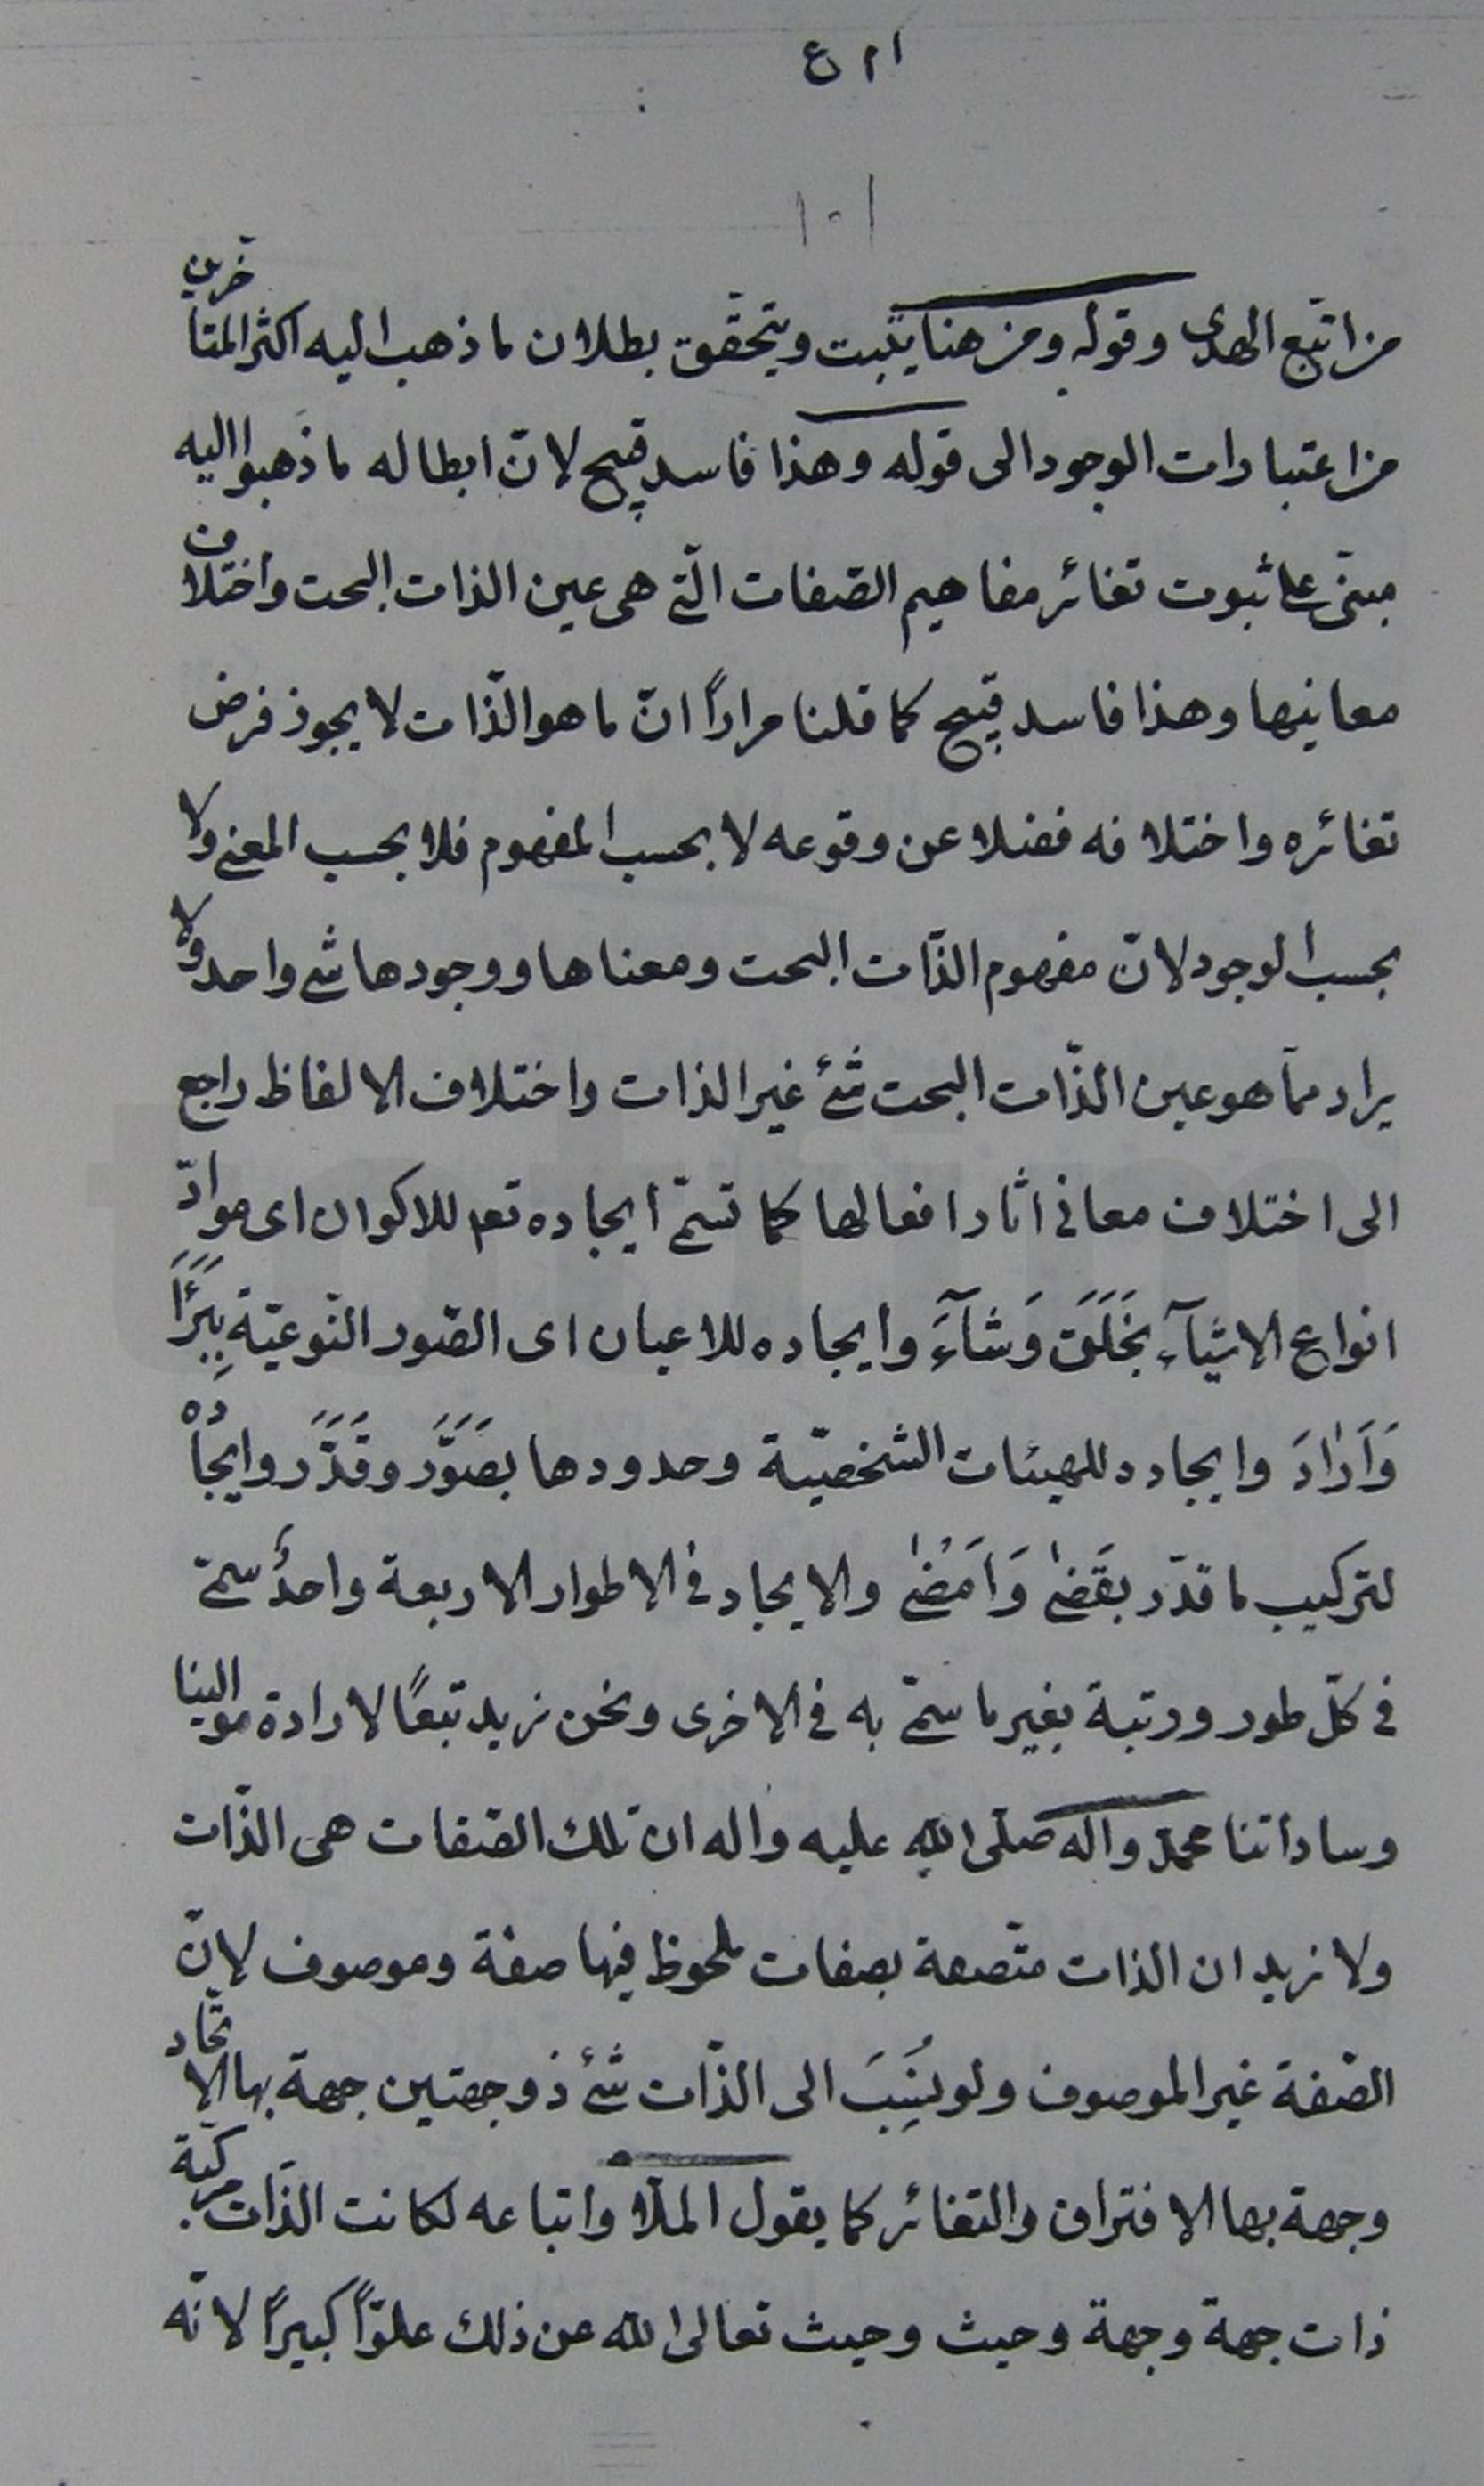 ١٠١
من اتّبع الهدى وقوله ومن هنا يثبت ويتحقّق بطلان ما ذهب اليه اكثر المتأخرين
من اعتبارات الوجود الى قوله وهذا فاسد قبيح لانّ ابطاله ما ذهبوا اليه
مبنىّ على ثبوت تغائر مفاهيم الصّفات الّتى هى عين الذات البحت واختلاف
معانيها وهذا فاسد قبيح كما قلنا مراراً انّ ما هو الذّات لا يجوز فرض
تغائره واختلافه فضلا عن وقوعه لا بحسب المفهوم فلا بحسب المعنى ولا
بحسب الوجود لانّ مفهوم الذّات البحت ومعناها ووجودها شئ واحد ولا
يراد ممّا هو عين الذّات البحت شئ غير الذات واختلاف الالفاظ راجع
الى اختلاف معانى اثار افعالها كما تسمّى ايجاده تعم للاكوان اى موادّ
انواع الاشيآء بخَلَقَ وَشآءَ وايجاده للاعيان اى الصّور النّوعيّة بِبَرَأَ
وَاَرادَ وايجاده للهيئات الشخصيّة وحدودها بصَوَّرَ وقَدَّرَ وايجاده
لتركيب ما قدّر بقَضىٰ وَاَمْضىٰ والايجاد فى الاطوار الاربعة واحدٌ سمّى
فى كلّ طور ورتبة بغير ما سمّى به فى الاخرى ونحن نريد تبعًا لارادة موالينا
وساداتنا محمّد واله صلّى الله عليه واله ان تلك الصّفات هى الذّات
ولا نريد ان الذات متّصفة بصفات ملحوظ فيها صفة وموصوف لانّ
الصّفة غير الموصوف ولو نُسِبَ الى الذّات شئ ذو جهتين جهة بها الاتّحاد
وجهة بها الافتراق والتغائر كما يقول الملّا واتباعه لكانت الذّات مركّبة
ذات جهة وجهة وحيث وحيث تعالى الله عن ذلك علوّاً كبيراً لانّه